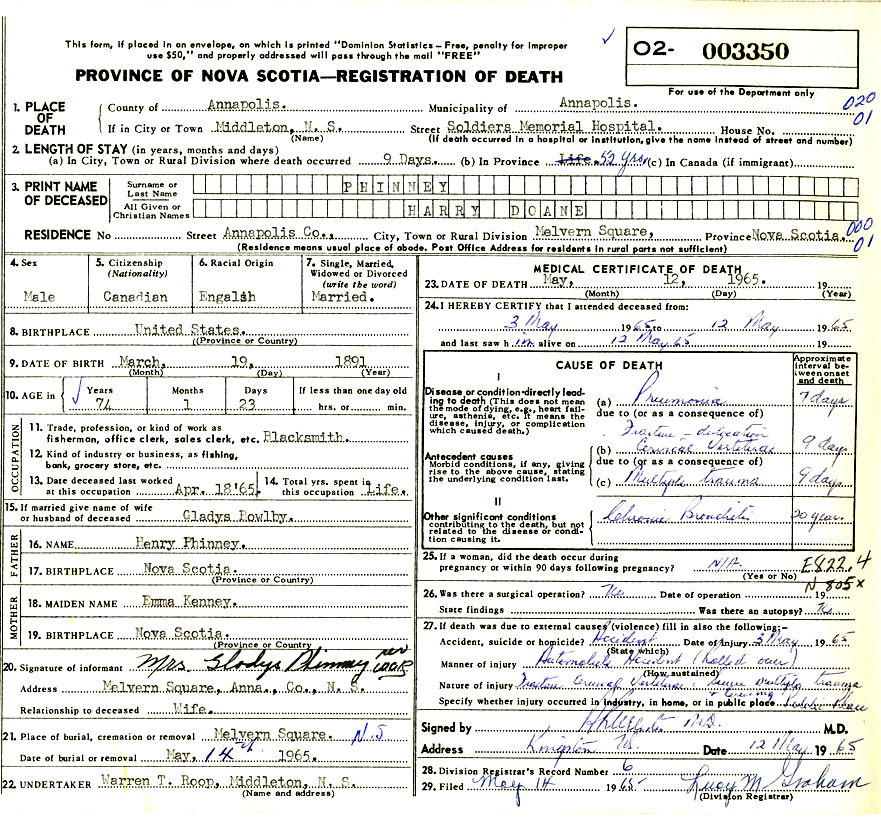 This form, if placed in an envelope, on which is printed "Dominion Statistics – Free, penalty for improper
use $50," and properly addressed will pass through the mail "FREE"
✓ O2- 003350
For use of the Department only
PROVINCE OF NOVA SCOTIA—REGISTRATION OF DEATH
1. PLACE OF DEATH County of Annapolis. Municipality of Annapolis. 020
If in City or Town Middleton, N. S. Street Soldiers Memorial Hospital. House No. 01
(Name) (If death occurred in a hospital or institution, give the name instead of street and number)
2. LENGTH OF STAY (in years, months and days)
(a) In City, Town or Rural Division where death occurred 9 Days. (b) In Province Life. 52 yrs (c) In Canada (if immigrant)
3. PRINT NAME OF DECEASED Surname or Last Name PHINNEY
All Given or Christian Names HARRY DOANE
RESIDENCE No Street Annapolis Co., City, Town or Rural Division Melvern Square, Province Nova Scotia. 000
(Residence means usual place of abode. Post Office Address for residents in rural parts not sufficient) 01
4. Sex 5. Citizenship (Nationality) 6. Racial Origin 7. Single, Married, Widowed or Divorced (write the word)
Male Canadian Engalsh Married.
8. BIRTHPLACE United States.
(Province or Country)
9. DATE OF BIRTH March, 19, 1891
(Month) (Day) (Year)
10. AGE in ✓ Years Months Days If less than one day old
74 1 23 hrs. or min.
OCCUPATION
11. Trade, profession, or kind of work as
fisherman, office clerk, sales clerk, etc. Blacksmith.
12. Kind of industry or business, as fishing,
bank, grocery store, etc.
13. Date deceased last worked at this occupation Apr. 18'65. 14. Total yrs. spent in this occupation Life.
15. If married give name of wife
or husband of deceased Gladys Bowlby.
FATHER
16. NAME Henry Phinney.
17. BIRTHPLACE Nova Scotia.
(Province or Country)
MOTHER
18. MAIDEN NAME Emma Kenney.
19. BIRTHPLACE Nova Scotia.
(Province or Country)
20. Signature of informant Mrs. Gladys Phinney per
Address Melvern Square, Anna., Co., N. S.
Relationship to deceased Wife.
21. Place of burial, cremation or removal Melvern Square. N.S
Date of burial or removal May, 14th 1965.
22. UNDERTAKER Warren T. Roop, Middleton, N. S.
(Name and address)
MEDICAL CERTIFICATE OF DEATH
23. DATE OF DEATH May, 12, 1965. 19
(Month) (Day) (Year)
24. I HEREBY CERTIFY that I attended deceased from:
3 May 1965 to 12 May 1965
and last saw h im alive on 12 May 65 19
CAUSE OF DEATH Approximate interval between onset and death
I
Disease or condition directly leading to death (This does not mean the mode of dying, e.g., heart failure, asthenia, etc. It means the disease, injury, or complication which caused death.)
(a) Pneumonia 7 days
due to (or as a consequence of)
Fracture - dislocation
(b) Cervical Vertebrae 9 days
Antecedent causes
Morbid conditions, if any, giving rise to the above cause, stating the underlying condition last.
due to (or as a consequence of)
(c) Multiple trauma 9 days
II
Other significant conditions
contributing to the death, but not related to the disease or condition causing it.
Chronic Bronchitis 20 years
25. If a woman, did the death occur during
pregnancy or within 90 days following pregnancy? N/A. E822.4
(Yes or No) N 805x
26. Was there a surgical operation? No Date of operation 19
State findings Was there an autopsy? No
27. If death was due to external causes (violence) fill in also the following:-
Accident, suicide or homicide? Accident Date of injury 3 May 1965
(State which)
Manner of injury Automobile Accident (rolled over)
(How sustained)
Nature of injury Fracture Cervical Vertebrae; Severe multiple trauma
Specify whether injury occurred in industry, in home, or in public place Public Place
Signed by M.D. M.D.
Address Kingston NS. Date 12 May 1965
28. Division Registrar's Record Number 6
29. Filed May 14 1965 Lucy M Graham
(Division Registrar)